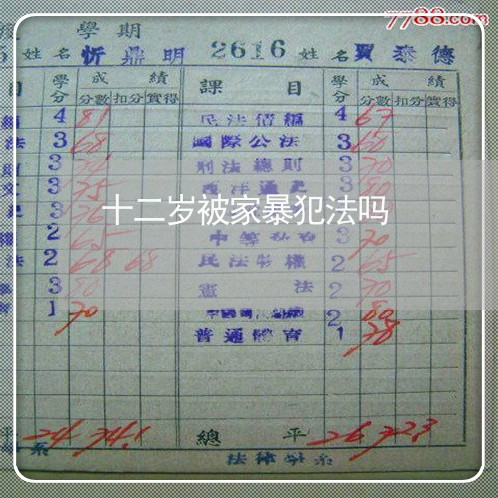 7788.com
學期
姓名 忻鼎明 2616 姓名 賈泰德
目 學分 成績 課目 學分 成績
分數 扣分 實得 分數 扣分 實得
4 81 民法債編 4 67
法 3 68 國際公法 3 60
3 刑法總則 3 70
3 75 西洋通史 3 80
十二岁被家暴犯法吗
2 65 3 70
法 2 68 68 民法物權 2 65
3 80 憲法 2 70
1 70 2 80
普通體育 1 78
24 74.1 總平 26 72.3
系 法律學系